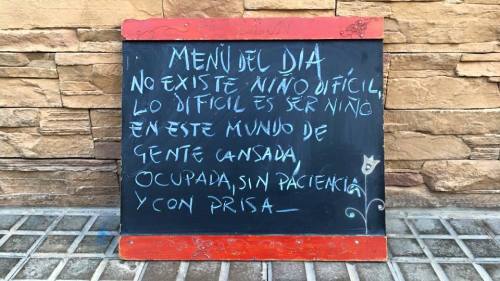 MENÚ DEL DIA
NO EXISTE NIÑO DIFÍCIL,
LO DIFICIL ES SER NIÑO
EN ESTE MUNDO DE
GENTE CANSADA,
OCUPADA, SIN PACIENCIA
Y CON PRISA_